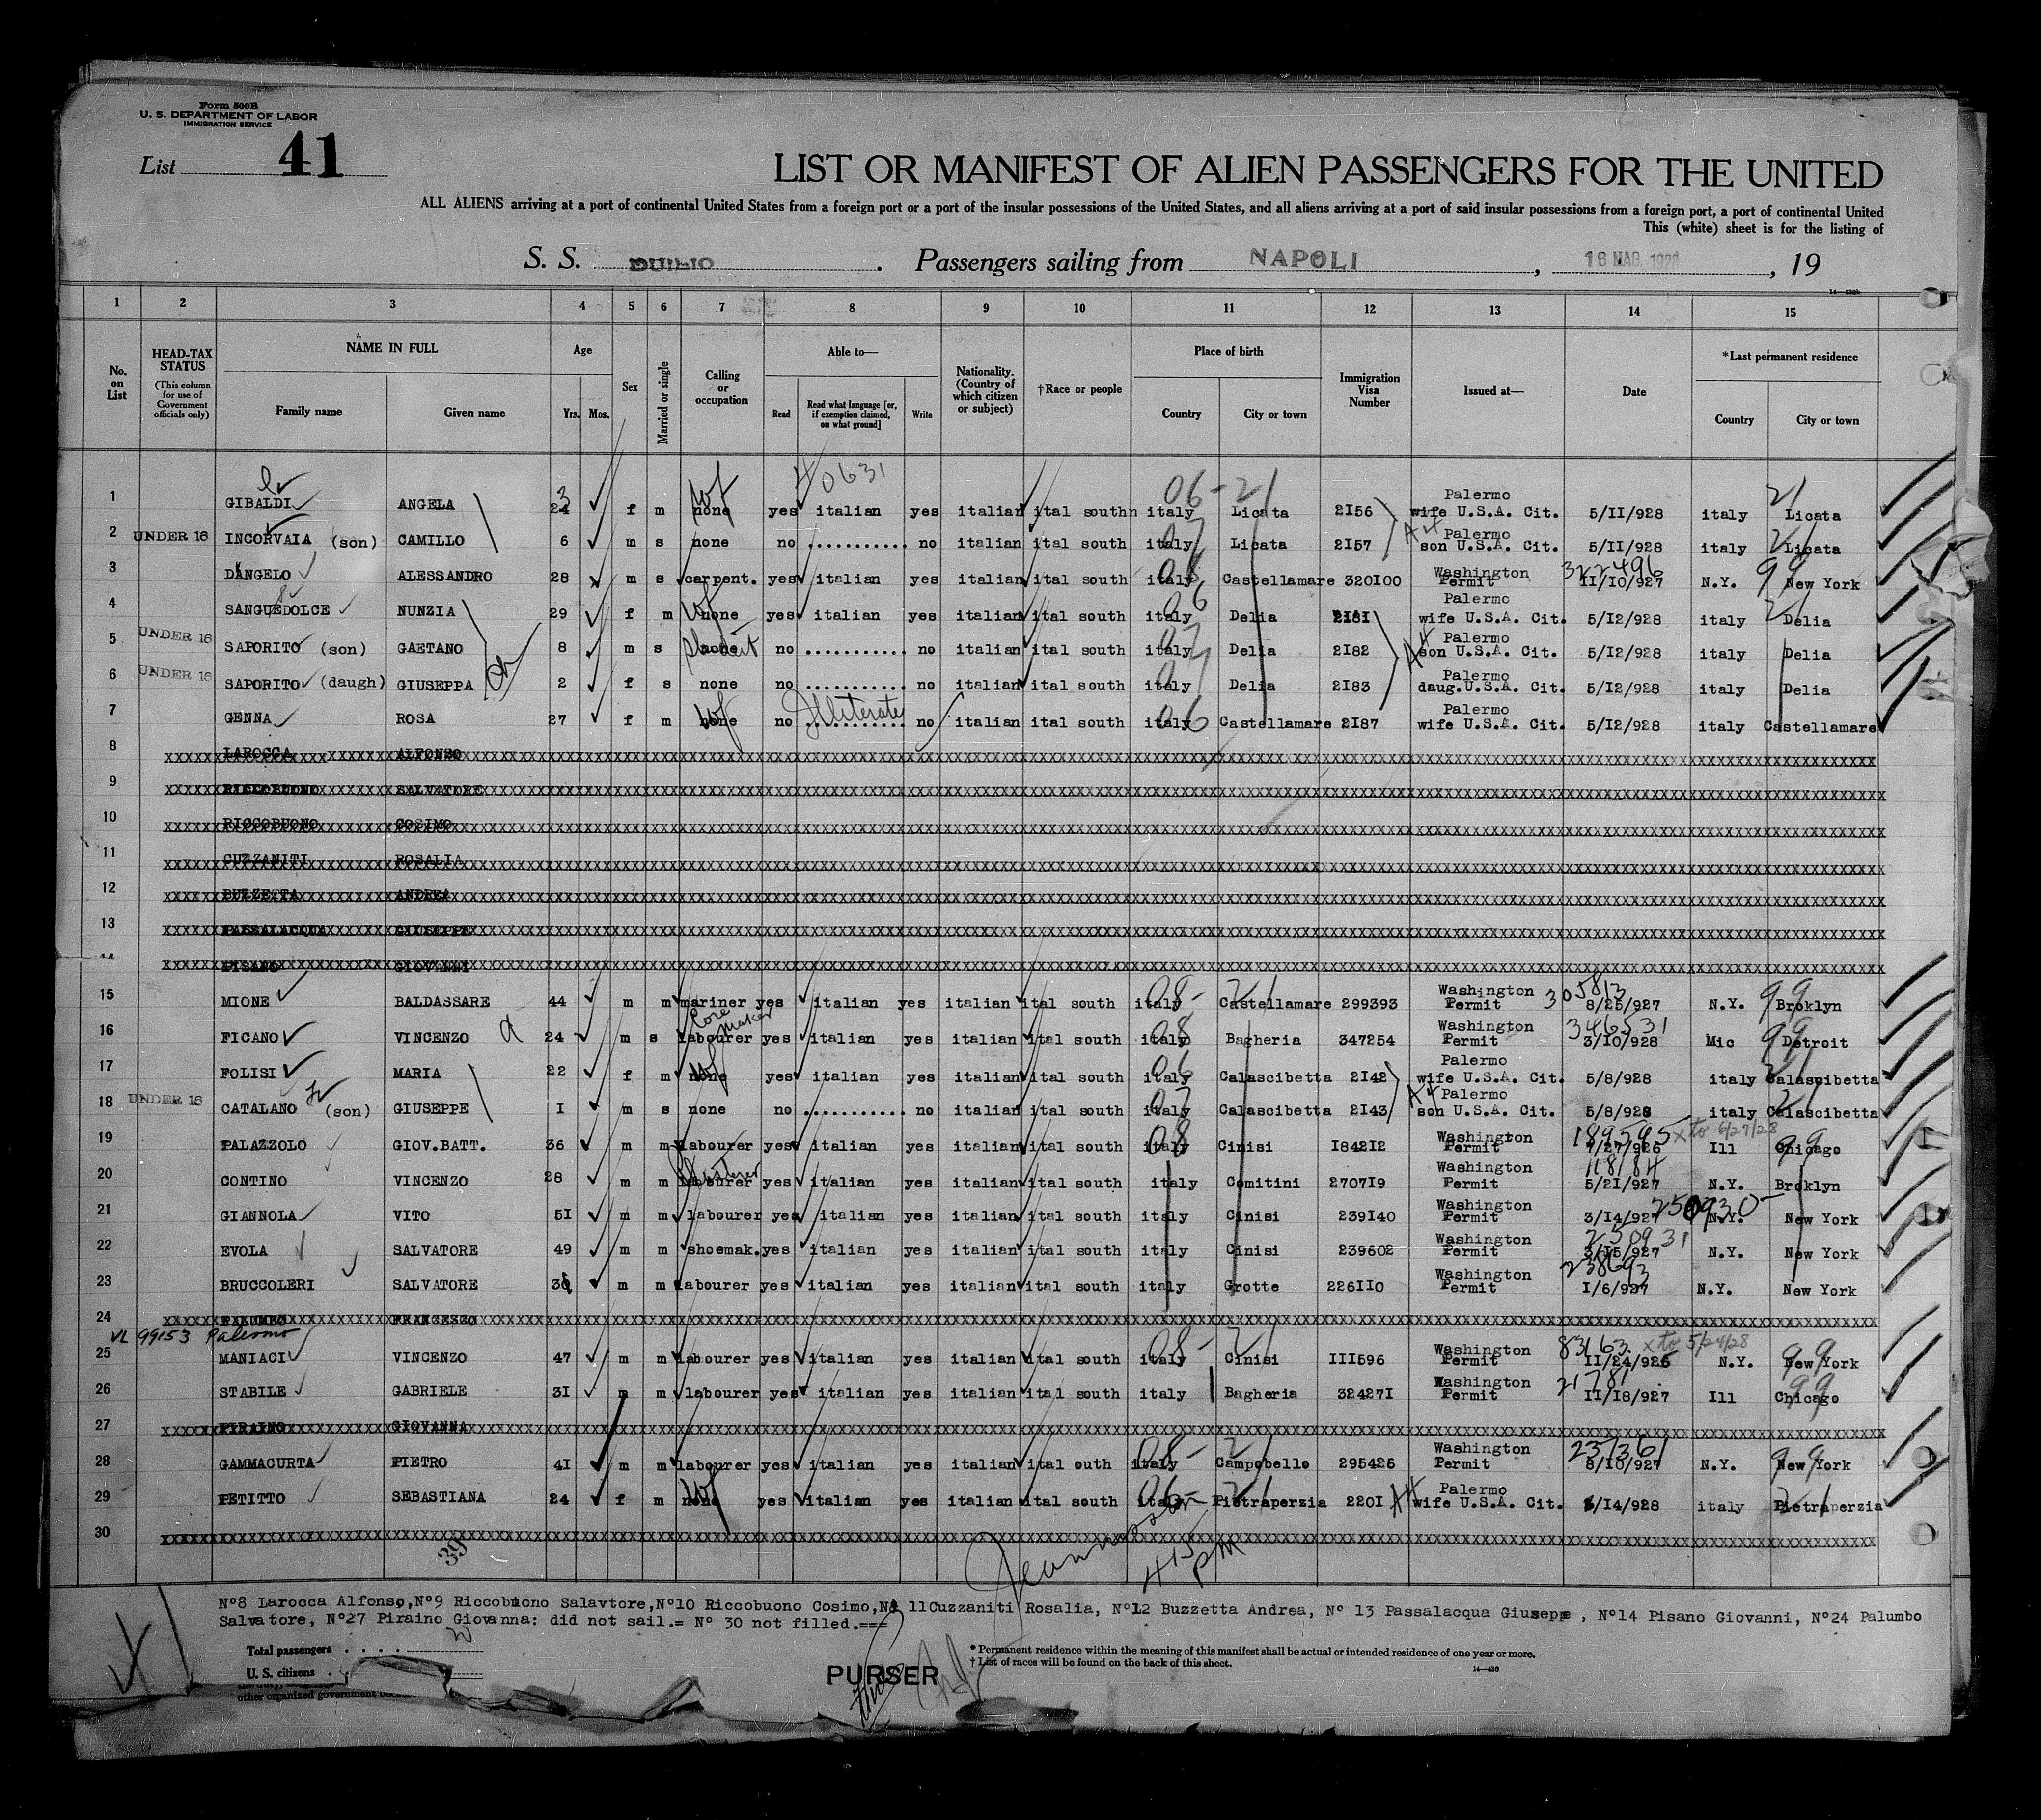 Form 500B
U. S. DEPARTMENT OF LABOR
IMMIGRATION SERVICE
List 41
LIST OR MANIFEST OF ALIEN PASSENGERS FOR THE UNITED
ALL ALIENS arriving at a port of continental United States from a foreign port or a port of the insular possessions of the United States, and all aliens arriving at a port of said insular possessions from a foreign port, a port of continental United
This (white) sheet is for the listing of
S. S. DUILIO. Passengers sailing from NAPOLI, 16 MAG. 1928, 19
1 2 3 4 5 6 7 8 9 10 11 12 13 14 15
No. on List
HEAD-TAX STATUS (This column for use of Government officials only)
NAME IN FULL Family name Given name
Age Yrs. Mos.
Sex
Married or single
Calling or occupation
Able to— Read Read what language [or, if exemption claimed, on what ground] Write
Nationality. (Country of which citizen or subject)
†Race or people
Place of birth Country City or town
Immigration Visa Number
Issued at—
Date
*Last permanent residence Country City or town
40631
1 GIBALDI ANGELA 24 f m none wf yes italian yes italian ital southn italy 06-21 Licata 2156 Palermo wife U.S.A. Cit. 5/11/928 italy 21 Licata
2 UNDER 16 INCORVAIA (son) CAMILLO 6 m s none no no italian ital south italy 07 Licata 2157 Palermo son U.S.A. Cit. 5/11/928 italy 21 Licata
3 DANGELO ALESSANDRO 28 m s carpent. yes italian yes italian ital south italy 08 Castellamare 320100 Washington Permit 322496 11/10/927 N.Y. 99 New York
4 SANGUEDOLCE NUNZIA 29 f m none wf yes italian yes italian ital south italy 06 Delia 2181 Palermo wife U.S.A. Cit. 5/12/928 italy 21 Delia
5 UNDER 16 SAPORITO (son) GAETANO 8 m s none student no no italian ital south italy 07 Delia 2182 Palermo son U.S.A. Cit. 5/12/928 italy Delia
6 UNDER 16 SAPORITO (daugh) GIUSEPPA 2 f s none no no italian ital south italy 07 Delia 2183 Palermo daug.U.S.A. Cit. 5/12/928 italy Delia
7 GENNA ROSA 27 f m none wf no Illiterate no italian ital south italy 06 Castellamare 2187 Palermo wife U.S.A. Cit. 5/12/928 italy Castellamare
8 LAROCCA ALFONSO
9 RICCOBUONO SALVATORE
10 RICCOBUONO COSIMO
11 CUZZANITI ROSALIA
12 BUZZETTA ANDREA
13 PASSALACQUA GIUSEPPE
14 PISANO GIOVANNI
15 MIONE BALDASSARE 44 m m mariner yes italian yes italian ital south italy 08- 21 Castellamare 299393 Washington Permit 305813 8/25/927 N.Y. 99 Broklyn
16 FICANO VINCENZO 24 m s labourer Core maker yes italian yes italian ital south italy 08 Bagheria 347254 Washington Permit 346531 3/10/928 Mic 99 Detroit
17 FOLISI MARIA 22 f m none wf yes italian yes italian ital south italy 06 Calascibetta 2142 Palermo wife U.S.A. Cit. 5/8/928 italy 21 Calascibetta
18 UNDER 16 CATALANO (son) GIUSEPPE 1 m s none no no italian ital south italy 07 Calascibetta 2143 Palermo son U.S.A. Cit. 5/8/928 italy 21 Calascibetta
19 PALAZZOLO GIOV.BATT. 36 m m labourer yes italian yes italian ital south italy 08 Cinisi 184212 Washington Permit 189595 x to 6/27/28 7/27/926 Ill 99 Chicago
20 CONTINO VINCENZO 28 m m labourer yes italian yes italian ital south italy Comitini 270719 Washington Permit 118184 5/21/927 N.Y. Broklyn
21 GIANNOLA VITO 51 m m labourer yes italian yes italian ital south italy Cinisi 239140 Washington Permit 3/14/927 250930 N.Y. New York
22 EVOLA SALVATORE 49 m m shoemak. yes italian yes italian ital south italy Cinisi 239602 Washington Permit 250931 3/15/927 N.Y. New York
23 BRUCCOLERI SALVATORE m m labourer yes italian yes italian ital south italy Grotte 226110 Washington Permit 238693 1/6/927 N.Y. New York
24 PALUMBO FRANCESCO
VL 99153 Palermo
25 MANIACI VINCENZO 47 m m labourer yes italian yes italian ital south italy 08- 21 Cinisi 111596 Washington Permit 83163 x to 5/24/28 11/24/926 N.Y. 99 New York
26 STABILE GABRIELE 31 m m labourer yes italian yes italian ital south italy Bagheria 324271 Washington Permit 21781 11/18/927 Ill 99 Chicago
27 PIRAINO GIOVANNA
28 GAMMACURTA PIETRO 41 m m labourer yes italian yes italian ital outh italy 08- 21 Campobello 295426 Washington Permit 231361 8/10/927 N.Y. 99 New York
29 PETITTO SEBASTIANA 24 f m none wf yes italian yes italian ital south italy 06- 21 Pietraperzia 2201 Palermo wife U.S.A. Cit. /14/928 italy 21 Pietraperzia
30
39
415 PM
Nº8 Larocca Alfonso,Nº9 Riccobuono Salavtore,Nº10 Riccobuono Cosimo,Nº 11Cuzzaniti Rosalia, Nº12 Buzzetta Andrea, Nº 13 Passalacqua Giuseppe , Nº14 Pisano Giovanni, Nº24 Palumbo
Salvatore, Nº27 Piraino Giovanna: did not sail.= Nº 30 not filled.===
Total passengers . . . . 20
U. S. citizens .
other organized government
PURSER
* Permanent residence within the meaning of this manifest shall be actual or intended residence of one year or more.
† List of races will be found on the back of this sheet.
14—430